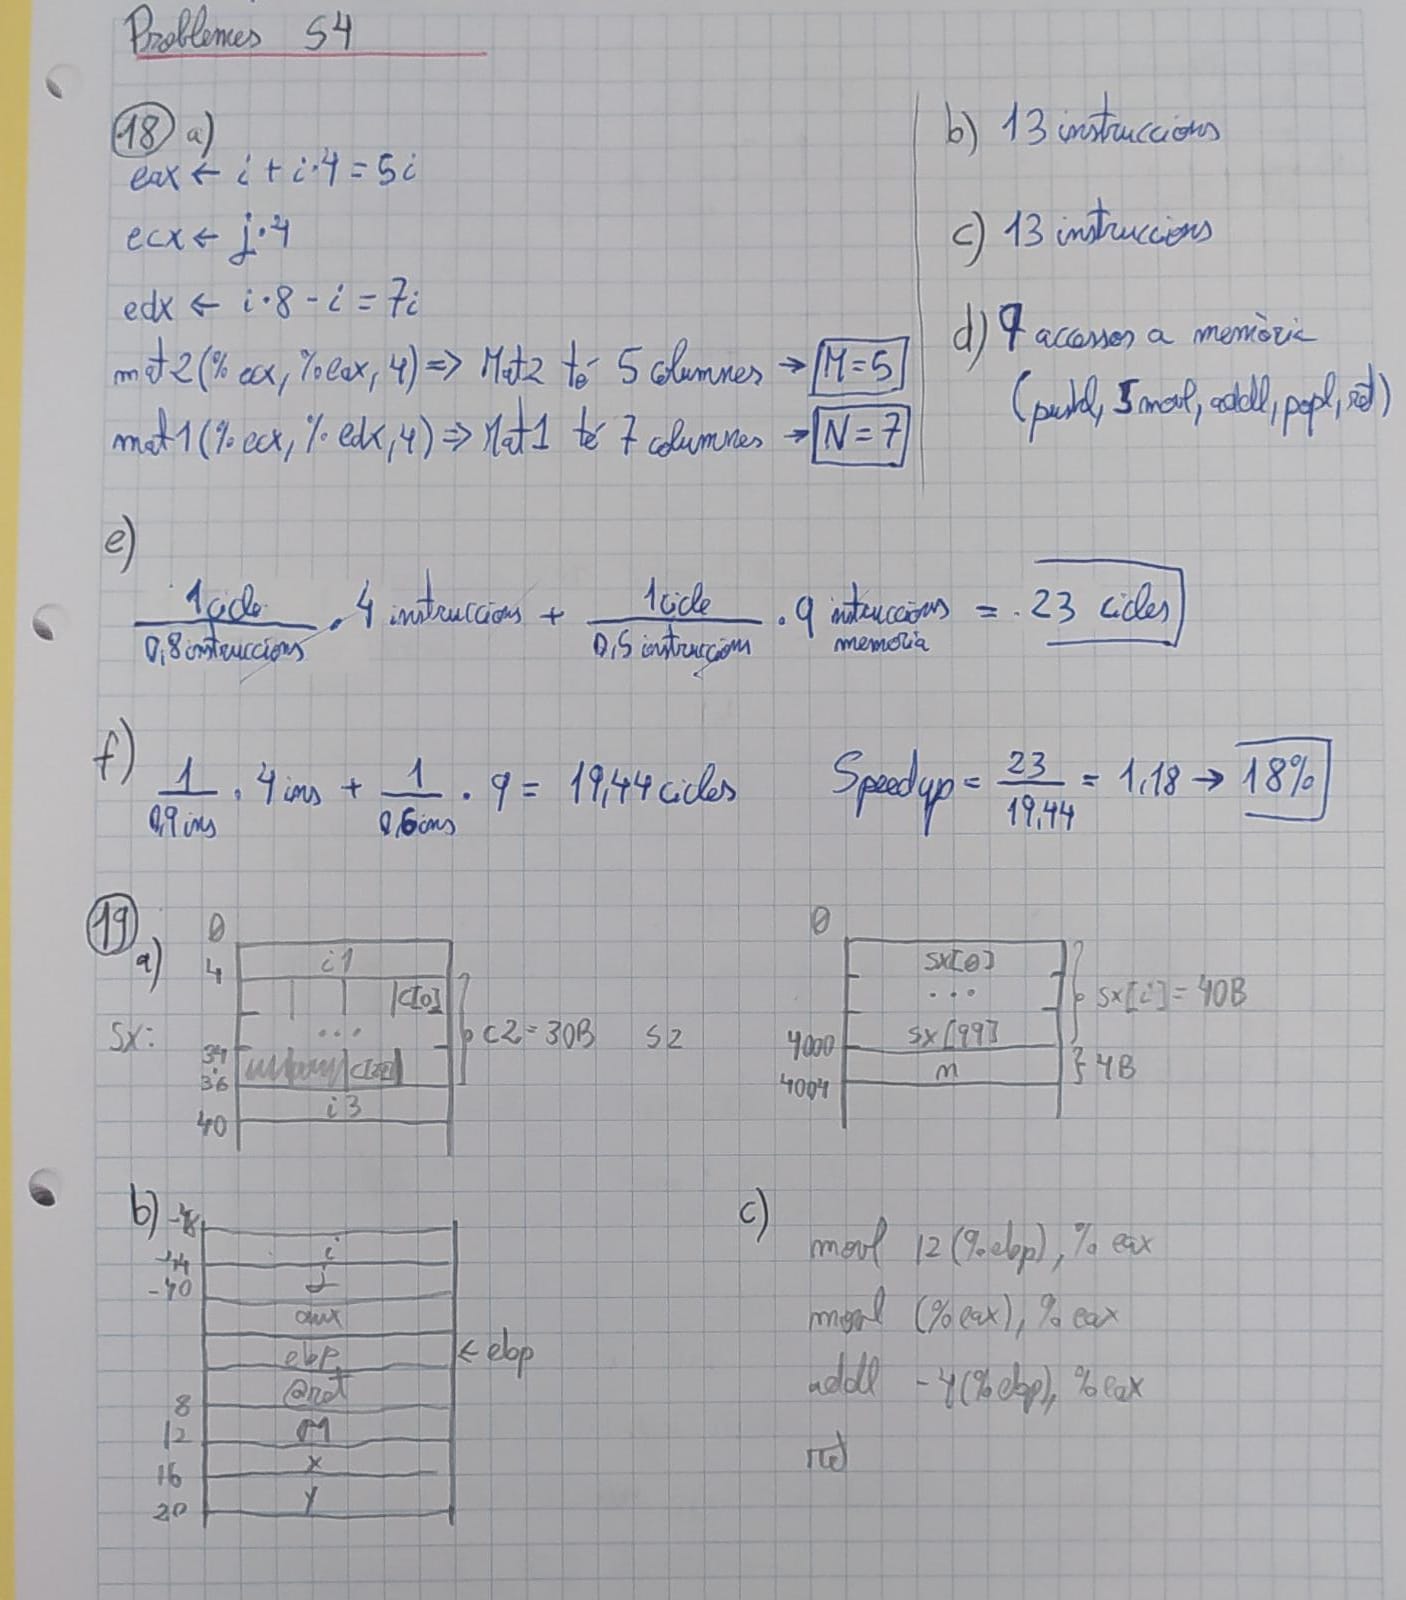 Problemes S4
18 a)
eax ← i + i·4 = 5i
ecx ← j·4
edx ← i·8 - i = 7i
mat2(%ecx, %eax, 4) => Mat2 té 5 columnes → M=5
mat1(%ecx, %edx, 4) => Mat1 té 7 columnes → N=7
b) 13 instruccions
c) 13 instruccions
d) 9 accessos a memòria
(pushl, 5 movl, addl, popl, ret)
e)
1 cicle / 0,8 instruccions · 4 instruccions + 1 cicle / 0,5 instruccions · 9 intruccions memoria = 23 cicles
f) 1 / 0,9 ins · 4 ins + 1 / 0,6 ins · 9 = 19,44 cicles
Speedup = 23 / 19,44 = 1,18 → 18%
19
a)
Sx:
0
i1
4
c[0]
...
34
36
i3
40
c2 = 30B
S2
0
sx[0]
...
sx[99]
4000
m
4004
sx[i] = 40B
4B
b)
i
j
-40
aux
ebp ← ebp
@ret
8
M
12
x
16
y
20
c)
movl 12(%ebp), %eax
movl (%eax), %eax
addl -4(%ebp), %eax
ret